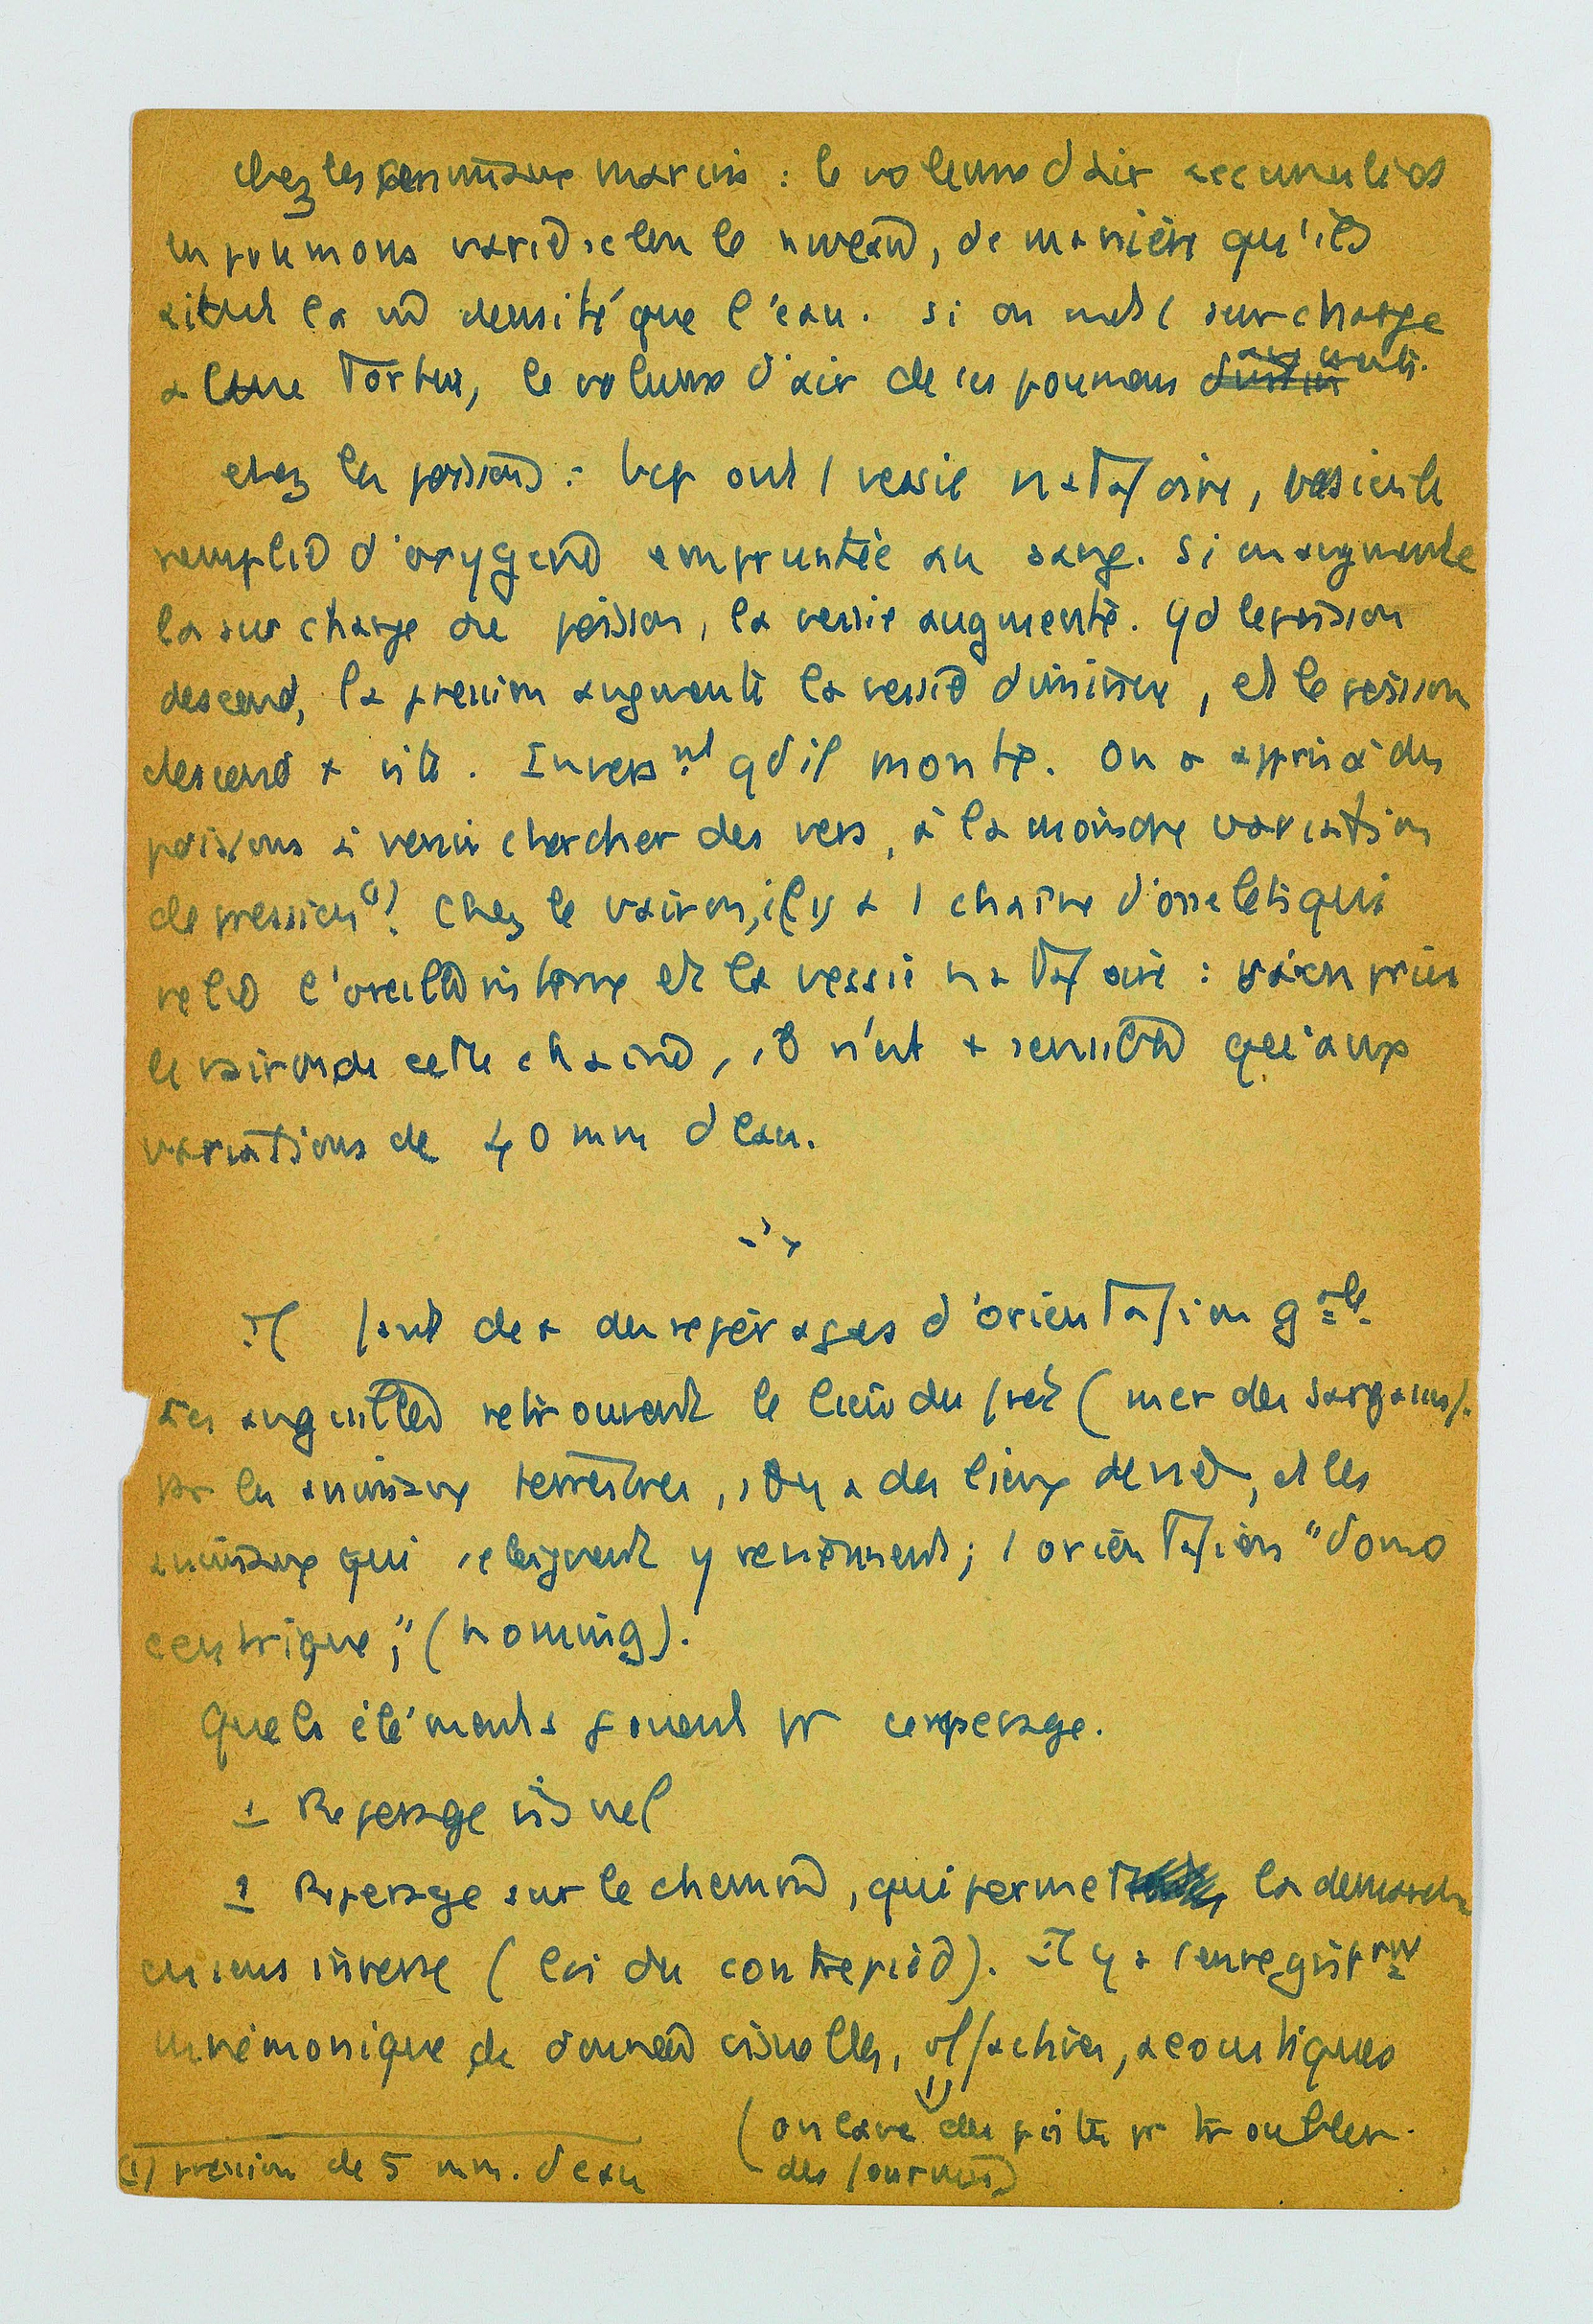 Chez les animaux marins : le volume d'air accumulés
en poumons varie selon le niveau, de manière qu'ils
aient la m̂ densité que l'eau. Si on met 1 surcharge
à une Tortue, le volume d'air de ses poumons augmente.
chez les poissons : bcp ont 1 vessie natatoire, vésicule
remplie d'oxygène empruntée au sang. Si on augmente
la surcharge du poisson, la vessie augmente. Qd le poisson
descend, la pression augmente la vessie diminue, et le poisson
descend + vite. Invers.nt qd il monte. On a appris à des
poissons à venir chercher des vers, à la moindre variation
de pression(1). Chez le vairon, il y a 1 chaîne d'osselets qui
relie l'oreille interne et la vessie natatoire : si on prive
le vairon de cette chaîne, il n'est + sensible qu'aux
variations de 40 mm d'eau.
Il faut de + des repérages d'orientation gale.
Les anguilles retrouvent le lieu du frai (mer des sargasses).
Pr les animaux terrestres, il y a des lieux de nid, et les
animaux qui s'éloignent y reviennent ; 1 orientation "domo
centrique", (homing).
Quels éléments jouent pr ce repérage.
1 Repérage visuel
2 Repérage sur le chemin, qui permet la démarche
en sens inverse (loi du contrepied). Il y a 1 enregistrnt
mnémonique de données visuelles, olfactives, acoustiques
(on lave des pistes pr troubler
des fourmis)
(1) pression de 5 mm. d'eau